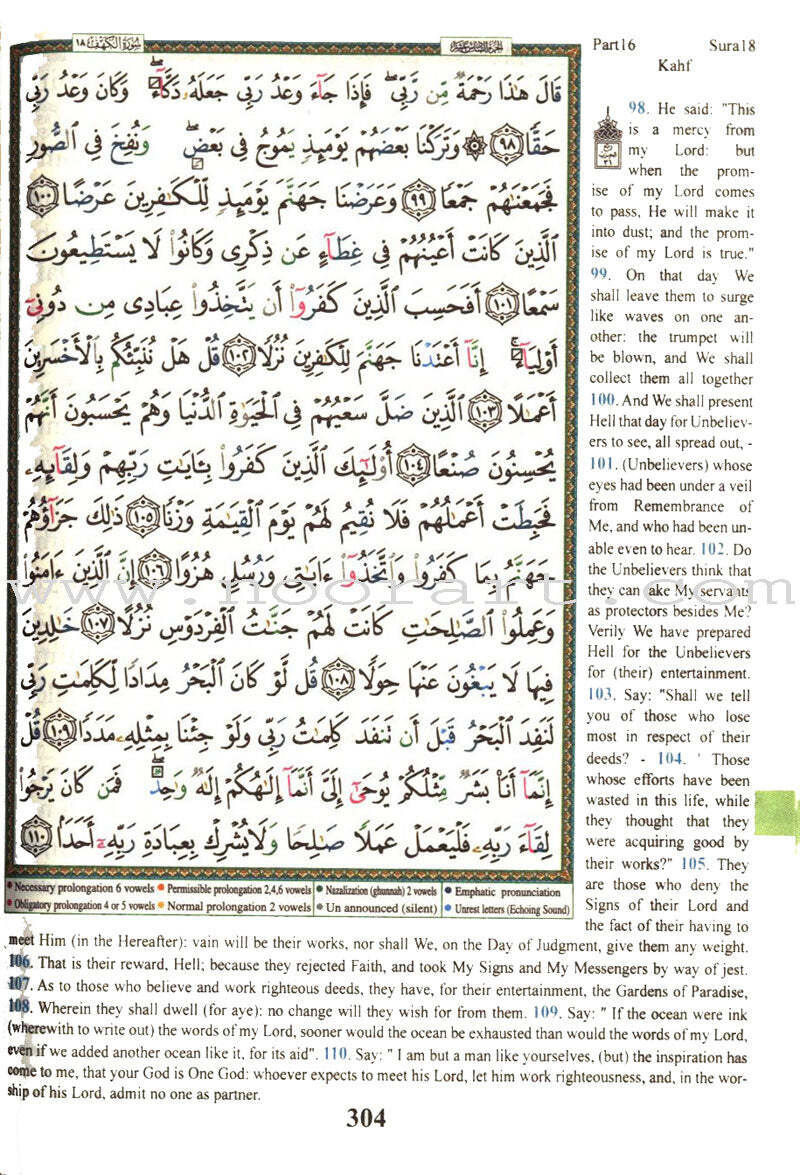 سُورَةُ الكَهْفِ ١٨
الجزء السادس عشر
Part16 Sura18
Kahf
قَالَ هَٰذَا رَحْمَةٌ مِّن رَّبِّي ۖ فَإِذَا جَآءَ وَعْدُ رَبِّي جَعَلَهُۥ دَكَّآءَ ۖ وَكَانَ وَعْدُ رَبِّي
حَقًّا ٩٨ ۞ وَتَرَكْنَا بَعْضَهُمْ يَوْمَئِذٍ يَمُوجُ فِي بَعْضٍ ۖ وَنُفِخَ فِي الصُّورِ
فَجَمَعْنَاهُمْ جَمْعًا ٩٩ وَعَرَضْنَا جَهَنَّمَ يَوْمَئِذٍ لِّلْكَافِرِينَ عَرْضًا ١٠٠
الَّذِينَ كَانَتْ أَعْيُنُهُمْ فِي غِطَآءٍ عَن ذِكْرِي وَكَانُوا۟ لَا يَسْتَطِيعُونَ
سَمْعًا ١٠١ أَفَحَسِبَ الَّذِينَ كَفَرُوٓا۟ أَن يَتَّخِذُوا۟ عِبَادِي مِن دُونِيٓ
أَوْلِيَآءَ ۚ إِنَّآ أَعْتَدْنَا جَهَنَّمَ لِلْكَافِرِينَ نُزُلًا ١٠٢ قُلْ هَلْ نُنَبِّئُكُم بِالْأَخْسَرِينَ
أَعْمَالًا ١٠٣ الَّذِينَ ضَلَّ سَعْيُهُمْ فِي الْحَيَوٰةِ الدُّنْيَا وَهُمْ يَحْسَبُونَ أَنَّهُمْ
يُحْسِنُونَ صُنْعًا ١٠٤ أُو۟لَٰٓئِكَ الَّذِينَ كَفَرُوا۟ بِـَٔايَاتِ رَبِّهِمْ وَلِقَآئِهِۦ
فَحَبِطَتْ أَعْمَالُهُمْ فَلَا نُقِيمُ لَهُمْ يَوْمَ الْقِيَامَةِ وَزْنًا ١٠٥ ذَٰلِكَ جَزَآؤُهُمْ
جَهَنَّمُ بِمَا كَفَرُوا۟ وَاتَّخَذُوٓا۟ ءَايَاتِي وَرُسُلِي هُزُوًا ١٠٦ إِنَّ الَّذِينَ ءَامَنُوا۟
وَعَمِلُوا۟ الصَّالِحَاتِ كَانَتْ لَهُمْ جَنَّاتُ الْفِرْدَوْسِ نُزُلًا ١٠٧ خَالِدِينَ
فِيهَا لَا يَبْغُونَ عَنْهَا حِوَلًا ١٠٨ قُل لَّوْ كَانَ الْبَحْرُ مِدَادًا لِّكَلِمَاتِ رَبِّي
لَنَفِدَ الْبَحْرُ قَبْلَ أَن تَنفَدَ كَلِمَاتُ رَبِّي وَلَوْ جِئْنَا بِمِثْلِهِۦ مَدَدًا ١٠٩ قُلْ
إِنَّمَآ أَنَا۠ بَشَرٌ مِّثْلُكُمْ يُوحَىٰٓ إِلَيَّ أَنَّمَآ إِلَٰهُكُمْ إِلَٰهٌ وَاحِدٌ ۖ فَمَن كَانَ يَرْجُوا۟
لِقَآءَ رَبِّهِۦ فَلْيَعْمَلْ عَمَلًا صَالِحًا وَلَا يُشْرِكْ بِعِبَادَةِ رَبِّهِۦٓ أَحَدًا ١١٠
Necessary prolongation 6 vowels Permissible prolongation 2,4,6 vowels Nazalization (ghunnah) 2 vowels Emphatic pronunciation
Obligatory prolongation 4 or 5 vowels Normal prolongation 2 vowels Un announced (silent) Unrest letters (Echoing Sound)
98. He said: "This
is a mercy from
my Lord: but
when the prom-
ise of my Lord comes
to pass, He will make it
into dust; and the prom-
ise of my Lord is true."
99. On that day We
shall leave them to surge
like waves on one an-
other: the trumpet will
be blown, and We shall
collect them all together
100. And We shall present
Hell that day for Unbeliev-
ers to see, all spread out, -
101. (Unbelievers) whose
eyes had been under a veil
from Remembrance of
Me, and who had been un-
able even to hear. 102. Do
the Unbelievers think that
they can ake My servants
as protectors besides Me?
Verily We have prepared
Hell for the Unbelievers
for (their) entertainment.
103. Say: "Shall we tell
you of those who lose
most in respect of their
deeds? - 104. ' Those
whose efforts have been
wasted in this life, while
they thought that they
were acquiring good by
their works?" 105. They
are those who deny the
Signs of their Lord and
the fact of their having to
meet Him (in the Hereafter): vain will be their works, nor shall We, on the Day of Judgment, give them any weight.
106. That is their reward, Hell; because they rejected Faith, and took My Signs and My Messengers by way of jest.
107. As to those who believe and work righteous deeds, they have, for their entertainment, the Gardens of Paradise,
108. Wherein they shall dwell (for aye): no change will they wish for from them. 109. Say: " If the ocean were ink
(wherewith to write out) the words of my Lord, sooner would the ocean be exhausted than would the words of my Lord,
even if we added another ocean like it, for its aid". 110. Say: " I am but a man like yourselves, (but) the inspiration has
come to me, that your God is One God: whoever expects to meet his Lord, let him work righteousness, and, in the wor-
ship of his Lord, admit no one as partner.
304
www.noorart.com